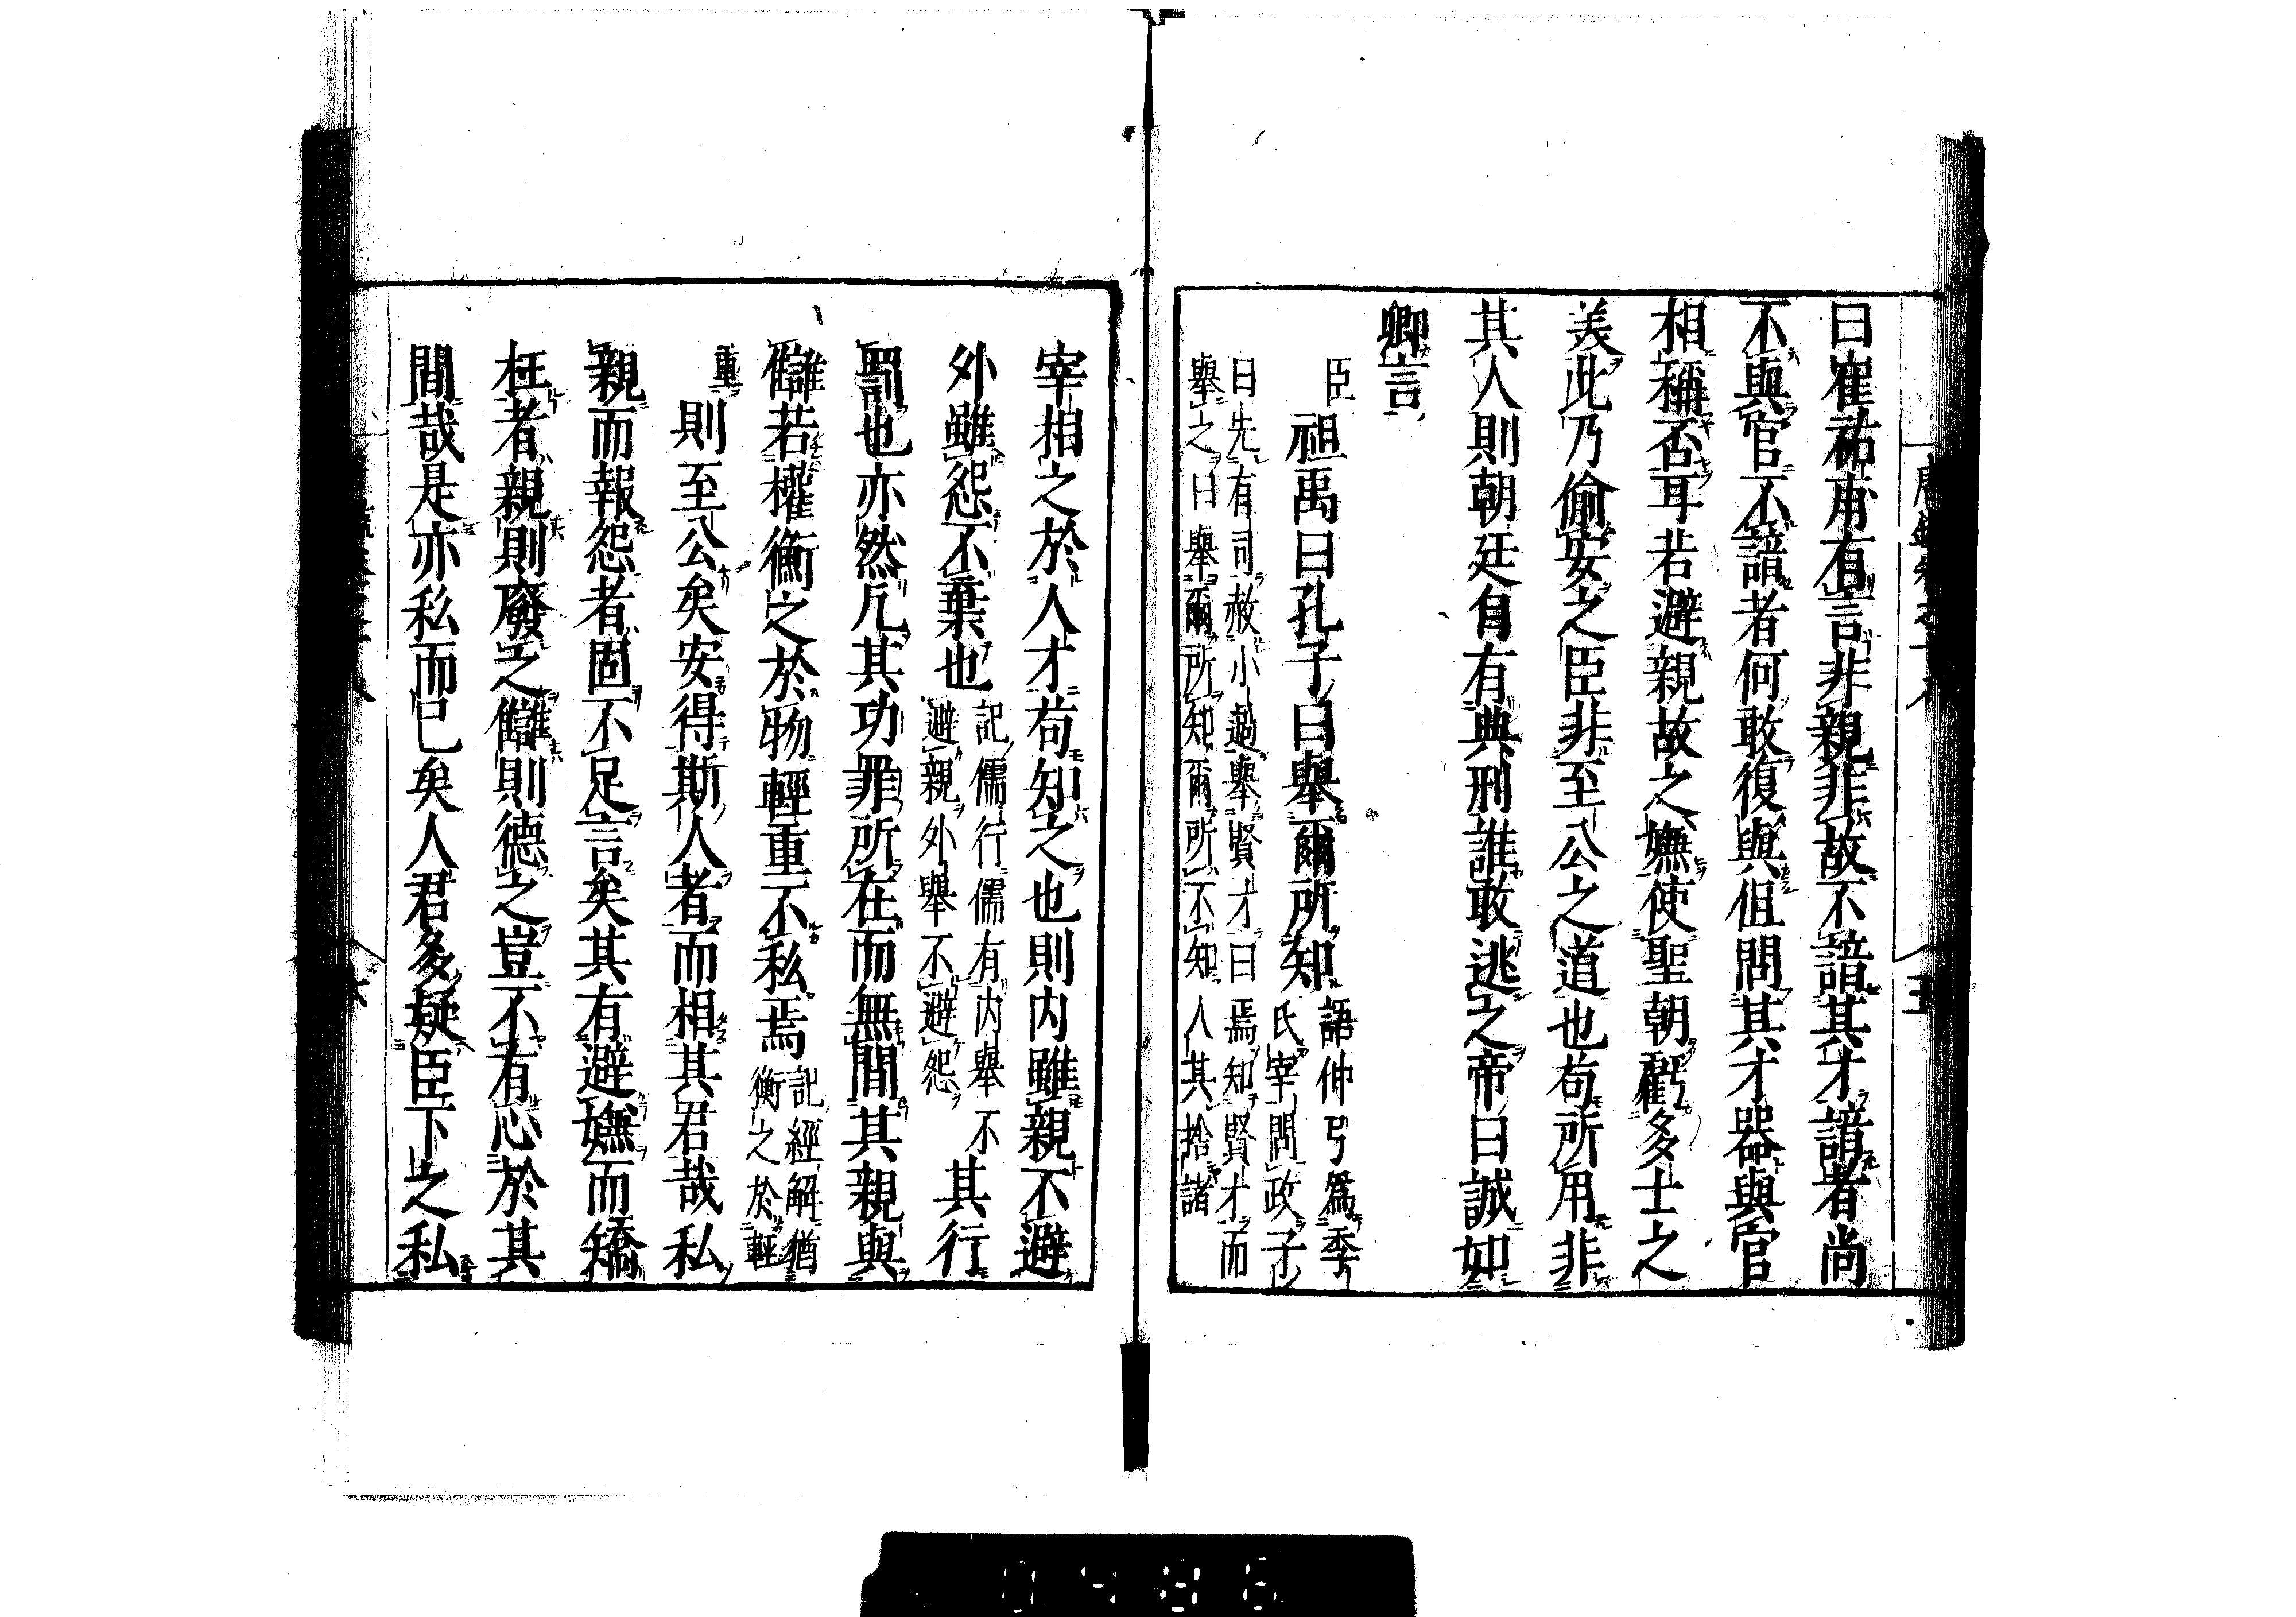 曰崔祐甫有言非親非故不諳其才諳者尚
不與官不諳者何敢復與但問其才器與官
相稱否耳若避親故之嫌使聖朝虧多士之
美此乃偷安之臣非至公之道也苟所用非
其人則朝廷自有典刑誰敢逃之帝曰誠如
卿言
臣祖禹曰孔子曰舉爾所知語仲弓爲季
氏宰問政子
曰先有司赦小過舉賢才曰焉知賢才而
舉之曰舉爾所知爾所不知人其捨諸
宰相之於人才苟知之也則内雖親不避
外雖怨不棄也記儒行儒有内舉不
避親外舉不避怨其行
罰也亦然凡其功罪所在而無間其親與
讎若權衡之於物輕重不私焉記經解猶
衡之於輕
重則至公矣安得斯人者而相其君哉私
親而報怨者固不足言矣其有避嫌而矯
枉者親則廢之讎則德之豈不有心於其
間哉是亦私而已矣人君多疑臣下之私